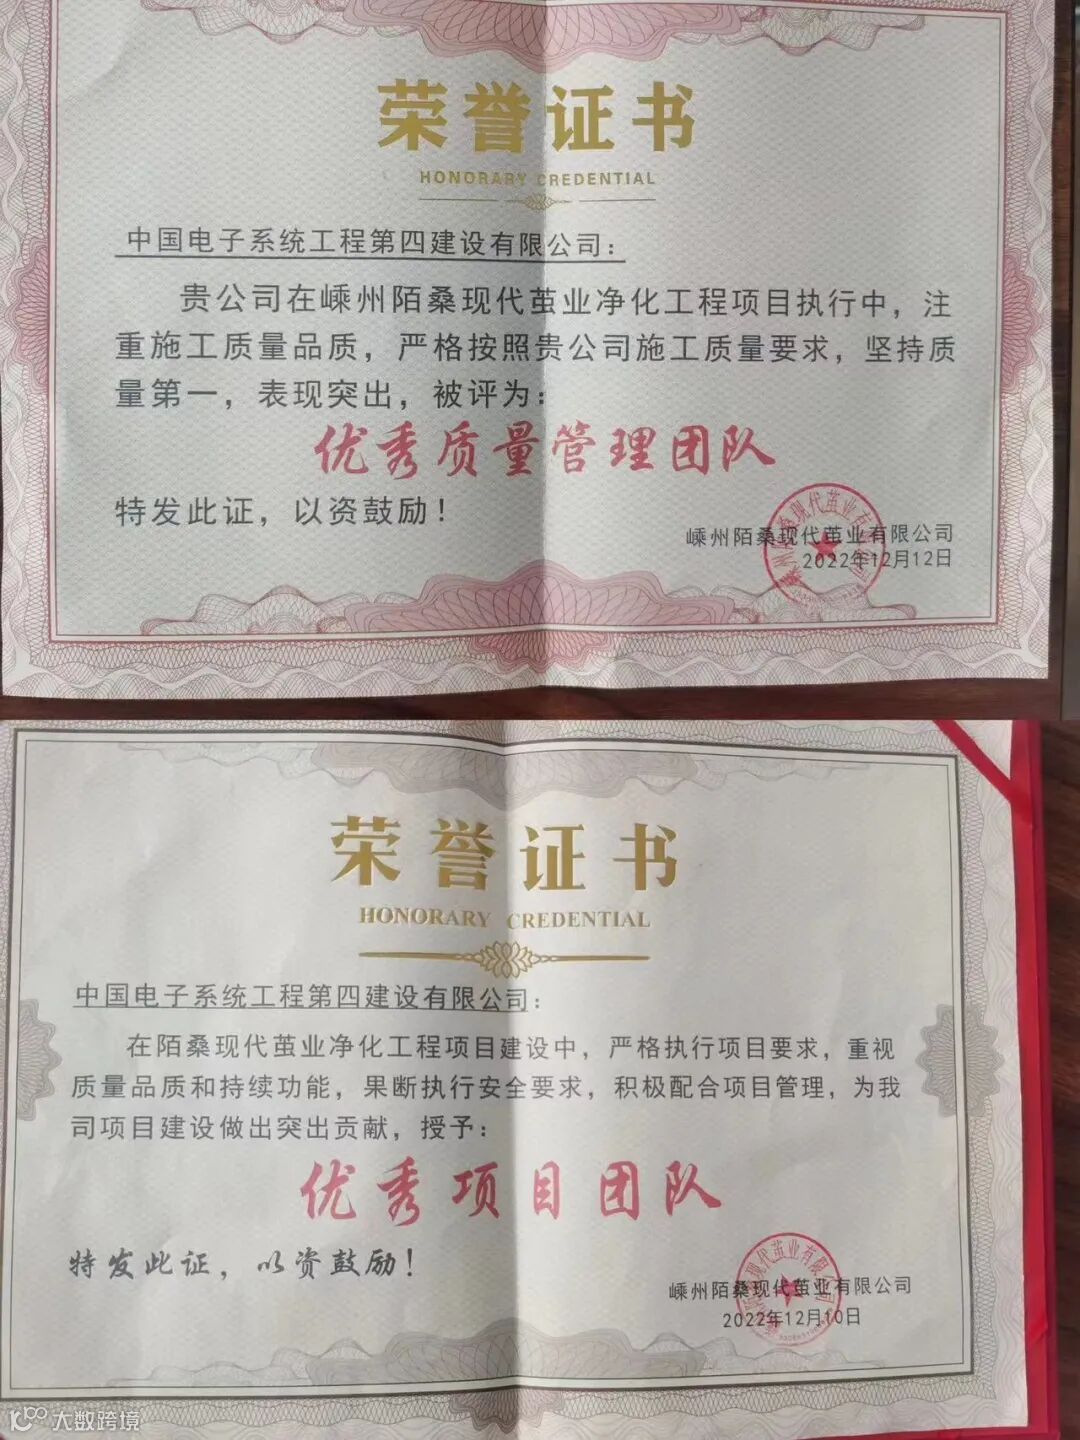 荣誉证书
HONORARY CREDENTIAL
中国电子系统工程第四建设有限公司：
贵公司在嵊州陌桑现代茧业净化工程项目执行中，注
重施工质量品质，严格按照贵公司施工质量要求，坚持质
量第一，表现突出，被评为：
优秀质量管理团队
特发此证，以资鼓励！
嵊州陌桑现代茧业有限公司
2022年12月12日
荣誉证书
HONORARY CREDENTIAL
中国电子系统工程第四建设有限公司：
在陌桑现代茧业净化工程项目建设中，严格执行项目要求，重视
质量品质和持续功能，果断执行安全要求，积极配合项目管理，为我
司项目建设做出突出贡献，授予：
优秀项目团队
特发此证，以资鼓励！
嵊州陌桑现代茧业有限公司
2022年12月10日
大数跨境